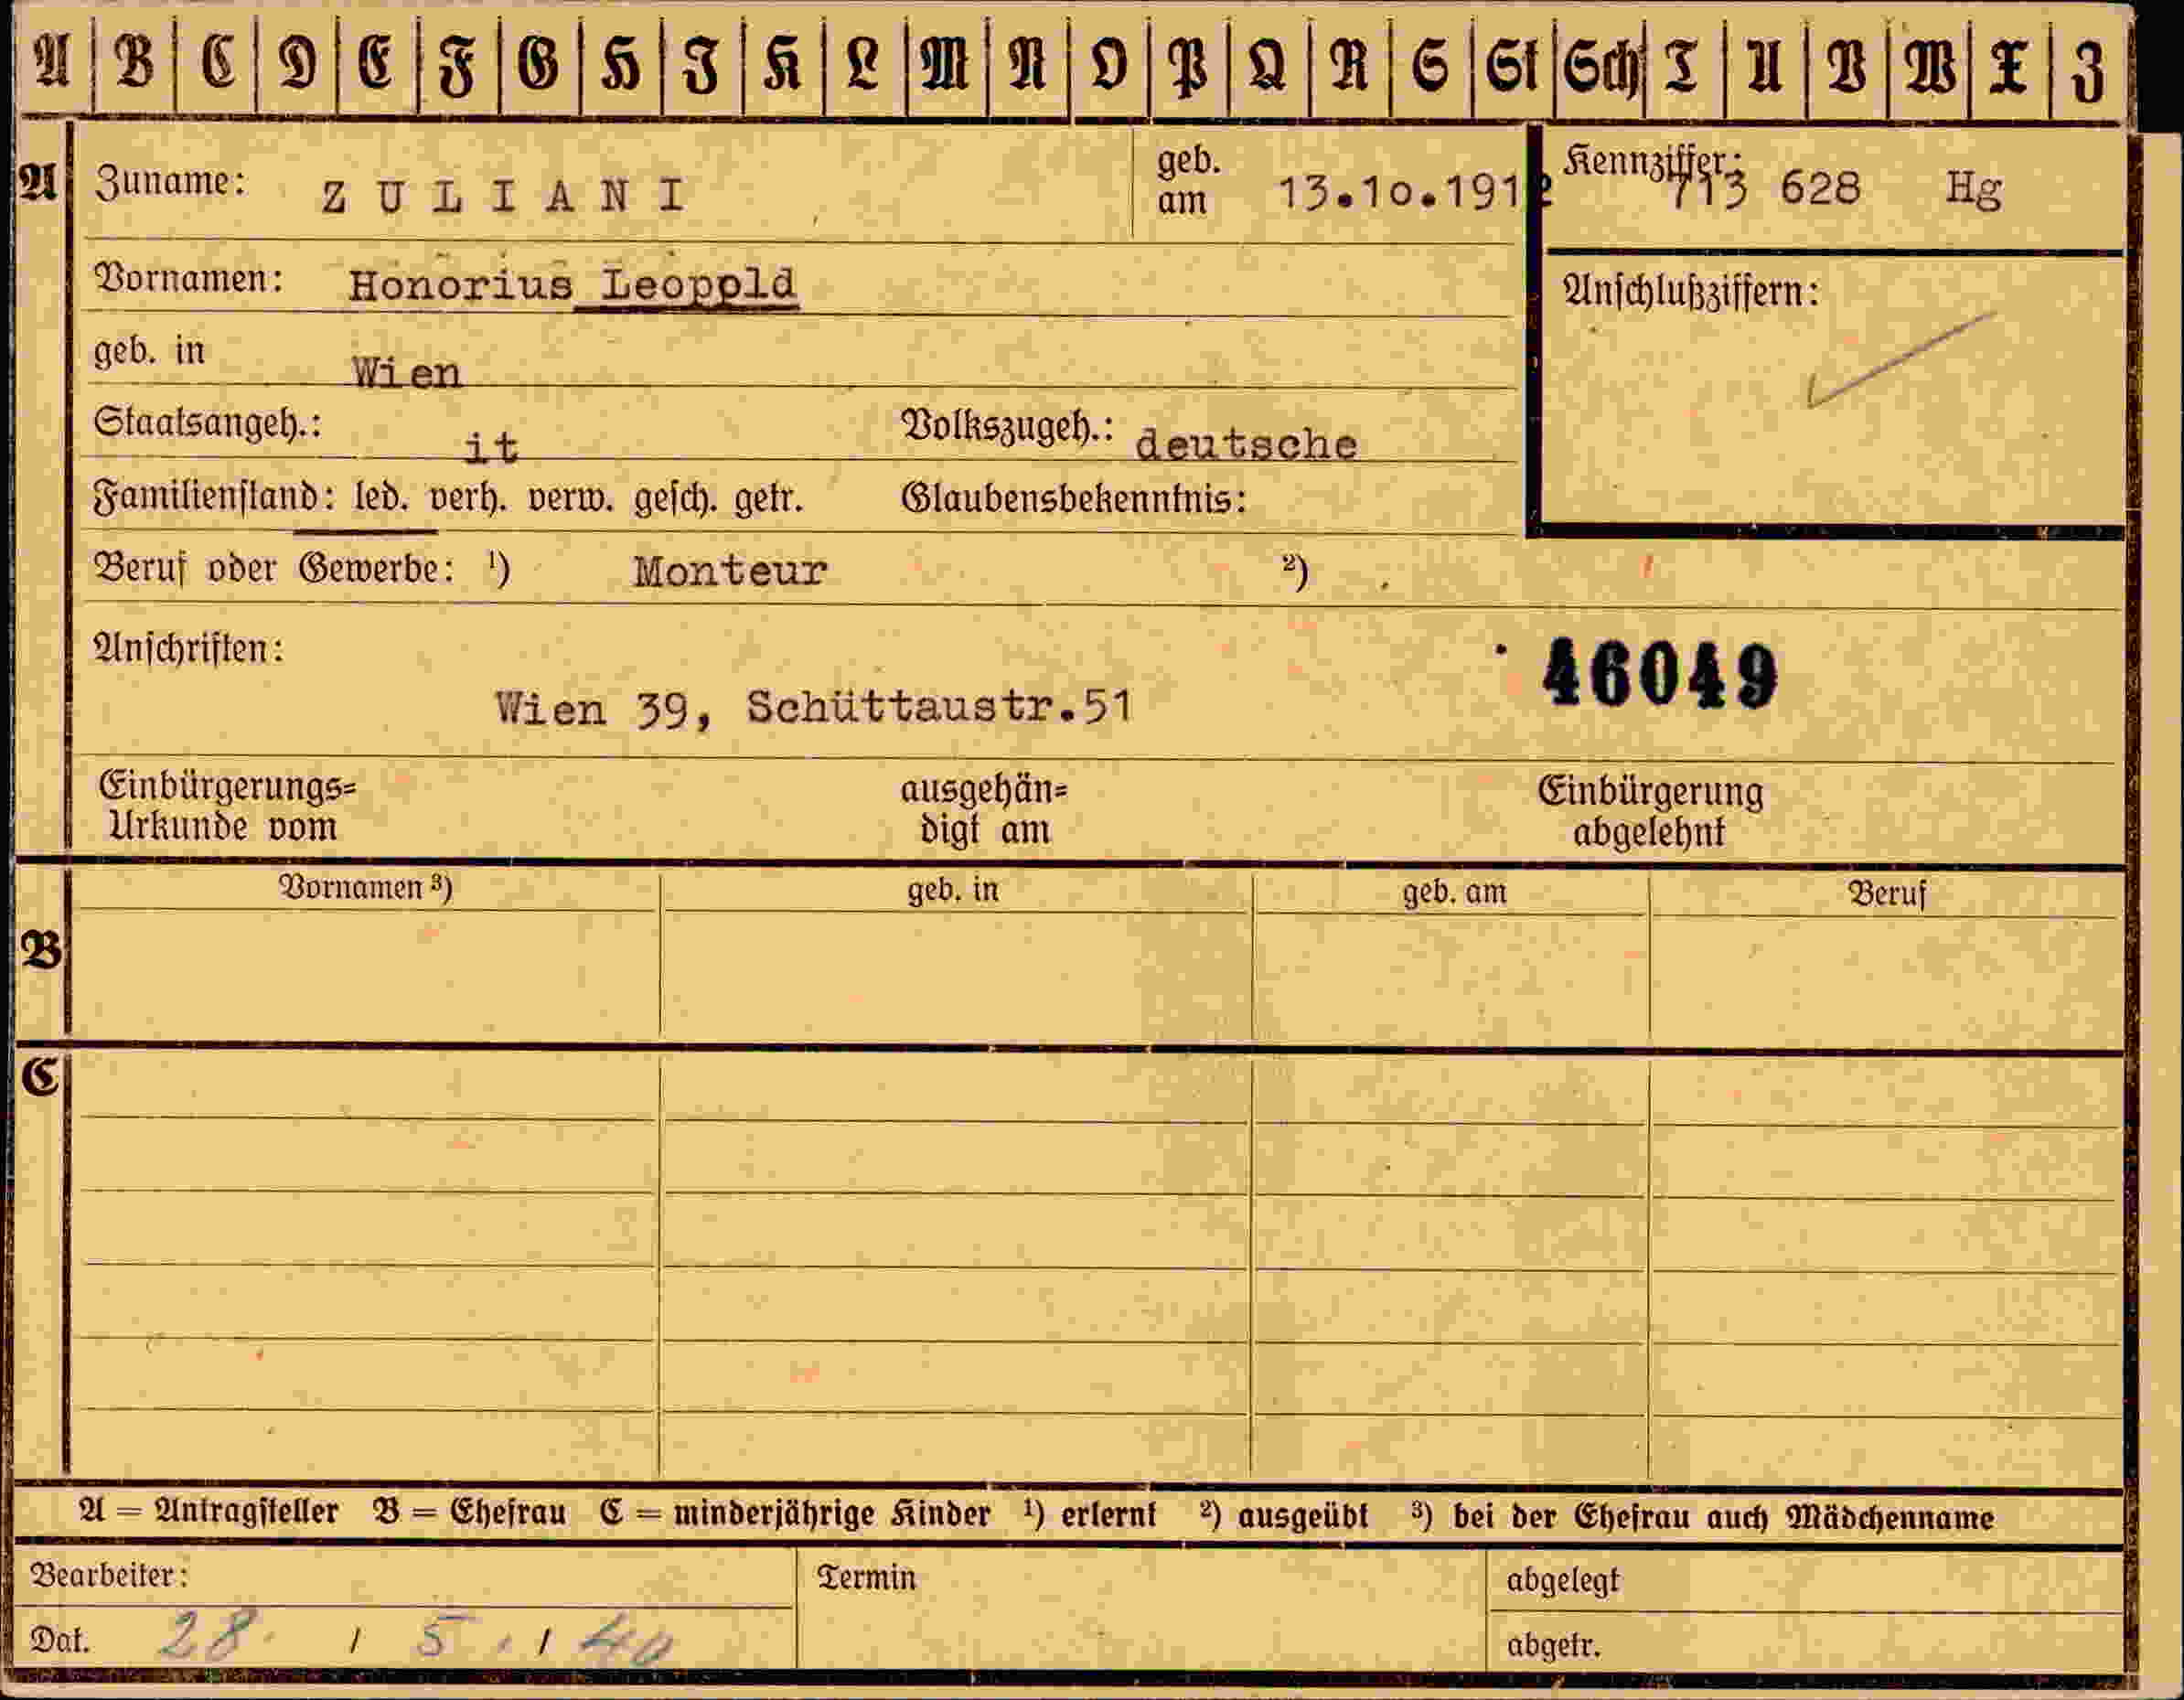 A B C D E F G H I K L M N O P Q R S St Sch T U V W X Z
A Zuname: ZULIANI geb. am 13.10.1912 Kennziffer: 713 628 Hg
Vornamen: Honorius Leopold Anschlußziffern:
geb. in Wien
Staatsangeh.: it Volkszugeh.: deutsche
Familienstand: led. verh. verw. gesch. getr. Glaubensbekenntnis:
Beruf oder Gewerbe: ¹) Monteur ²)
Anschriften: 46049
Wien 39, Schüttaustr.51
Einbürgerungs= ausgehän= Einbürgerung
Urkunde vom digt am abgelehnt
Vornamen ³) geb. in geb. am Beruf
B
C
A = Antragsteller B = Ehefrau C = minderjährige Kinder ¹) erlernt ²) ausgeübt ³) bei der Ehefrau auch Mädchenname
Bearbeiter: Termin abgelegt
Dat. 28. / 5. / 40 abgetr.